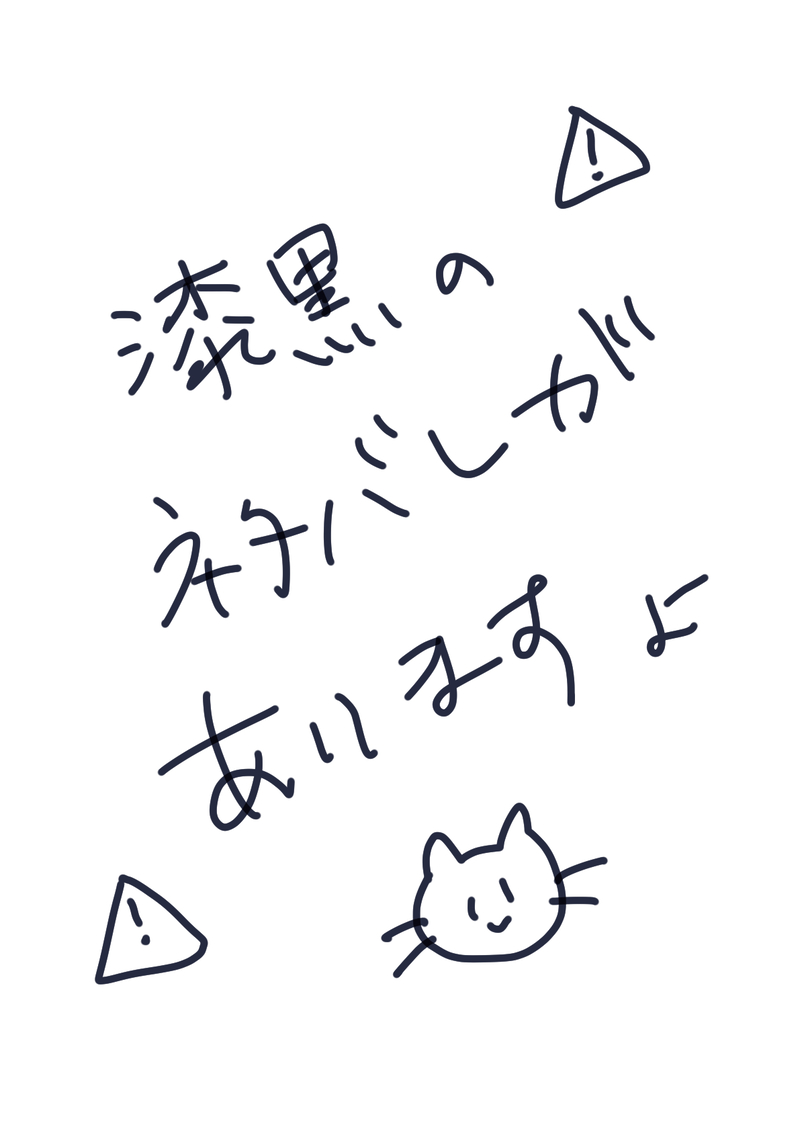 漆黒の
ネタバレが
あります よ